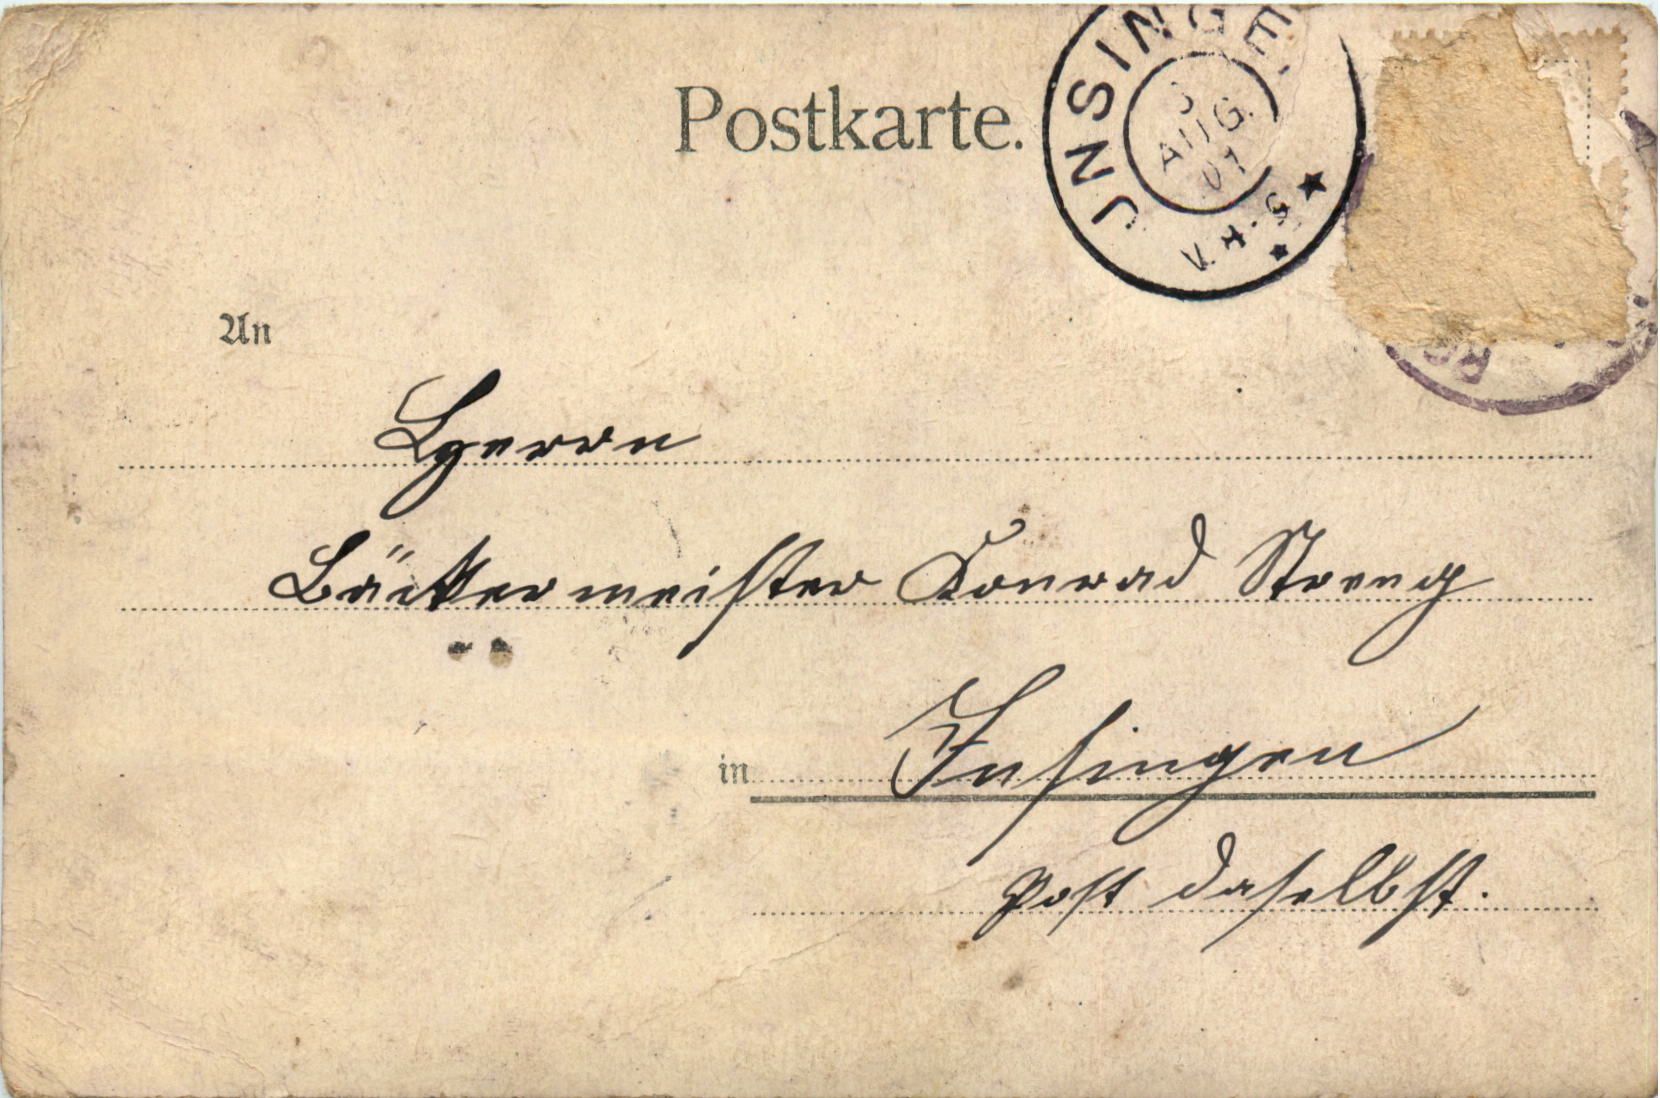 Postkarte.
JNSINGE
AUG.
01
An
Herrn
Bäckermeister Konrad Streng
in Insingen
Post daselbst.